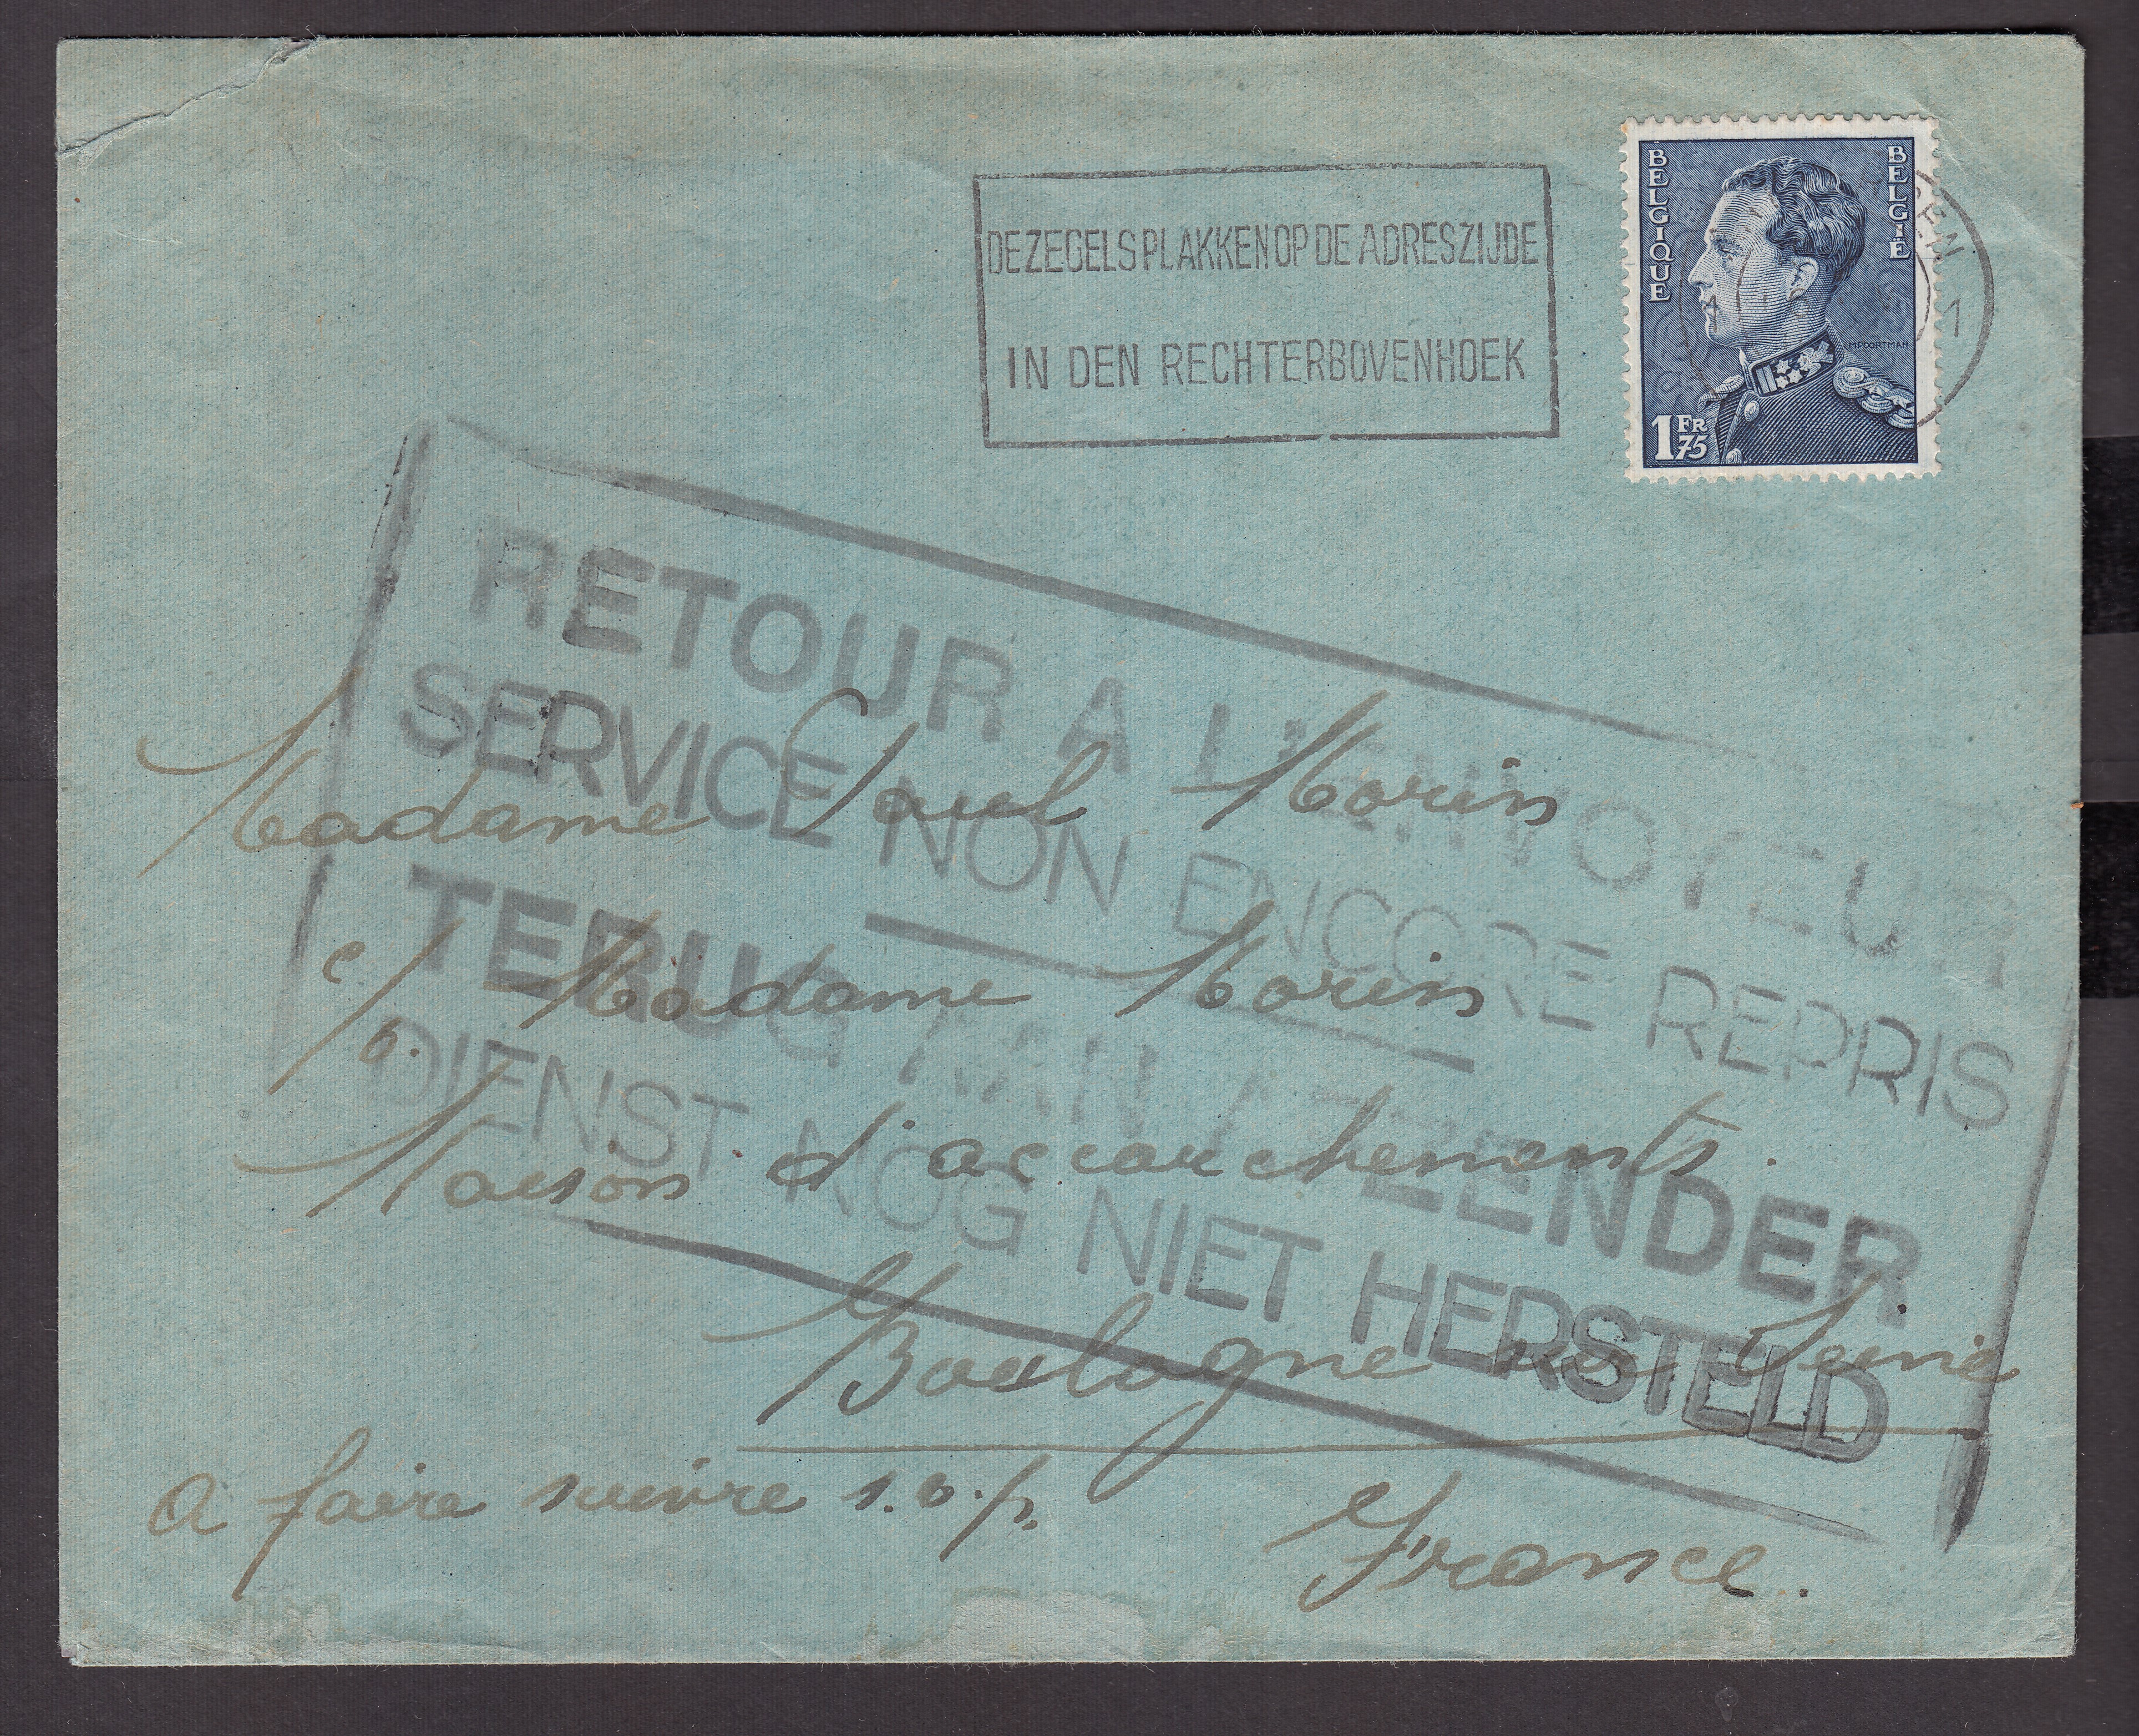 DE ZEGELS PLAKKEN OP DE ADRESZIJDE
IN DEN RECHTERBOVENHOEK
BELGIQUE
BELGIË
MPOORTMAN
1 FR 75
1
RETOUR A L'ENVOYEUR
SERVICE NON ENCORE REPRIS
TERUG AAN AFZENDER
DIENST NOG NIET HERSTELD
Madame Paul Morin
c/o. Madame Morin
Maison d'accouchements.
Boulogne sur Seine
a faire suivre s.v.p.
France.